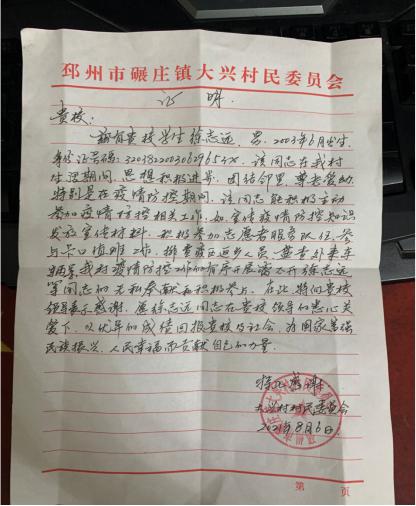 邳州市碾庄镇大兴村民委员会
证 明
贵校:
兹有贵校学生徐志远,男,2003年6月出生,
身份证号码: 该同志在我村
生活期间,思想积极进步,团结邻里,尊老爱幼,
特别是在疫情防控期间,该同志能积极主动
参加疫情防控相关工作,如:宣传疫情防控知识
发放宣传材料,积极参加志愿者服务队伍,参
与卡口值班工作,排查疫区返乡人员,盘查外来车
辆等,我村疫情防控工作的有序开展离不开徐志远
等同志的无私奉献和积极参与,在此,特向贵校
领导表示感谢。愿徐志远同志在贵校领导的悉心关
管下,以优异的成绩回报贵校与社会,为国家富强
民族振兴、人民幸福而贡献自己的力量。
特此感谢
大兴村村民委员会
2021年8月6日
第 页